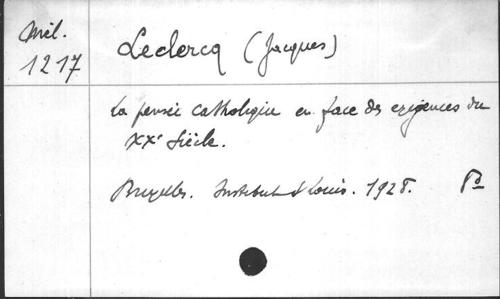 Mél.
1217
Leclercq (Jacques)
La pensée catholique en face des exigences du
XXe Siècle.
Bruxelles. Institut St Louis. 1928.